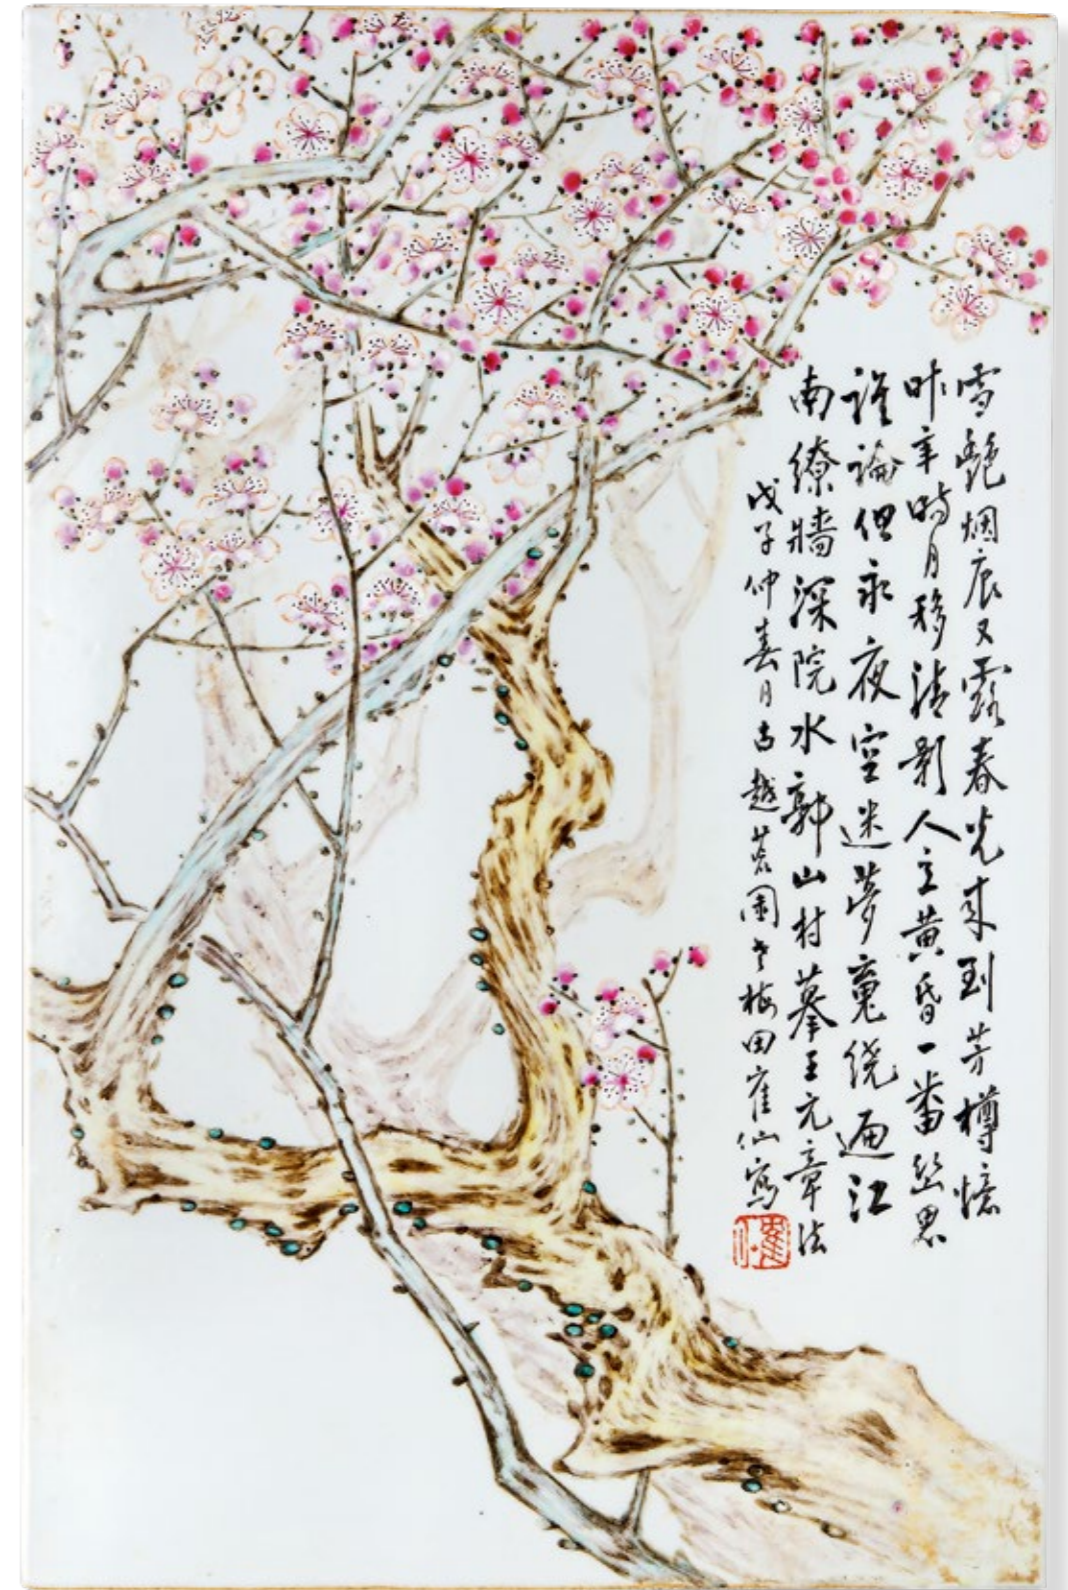 雪艷烟痕又露春光来到芳樽憶
昨年時月移清影人立黄昏一畨幽思
誰論但永夜空迷夢䰟繞遍江
南繚牆深院水郭山村摹王元章法
戊子仲春月古越荒園老梅田隺仙寫